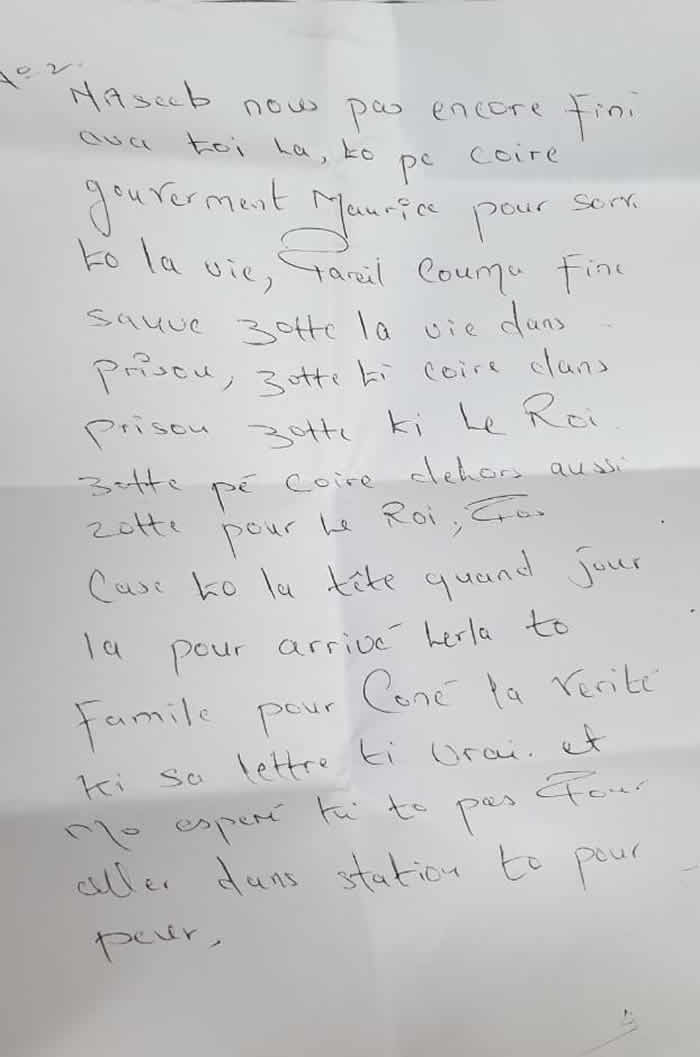 No 2.
NAseeb nous pas encore Fini
ava toi La, to pe coire
gouverment Maurice pour sorv.
to la vie, Pareil Couma Fine
sauve zotte la vie dans
prison, zotte ti coire dans
prison zotte ki Le Roi.
zotte pé coire dehors aussi
zotte pour Le Roi, Pas
Case to la tête quand jour
la pour arrivé Lerla to
Famile pour Coné la verité
ki sa lettre ti vrai. et
Mo esperé ki to pas Pour
aller dans station to pour
peur,